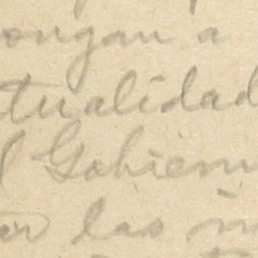 ongan a
tualidad
l Gobiern
or las